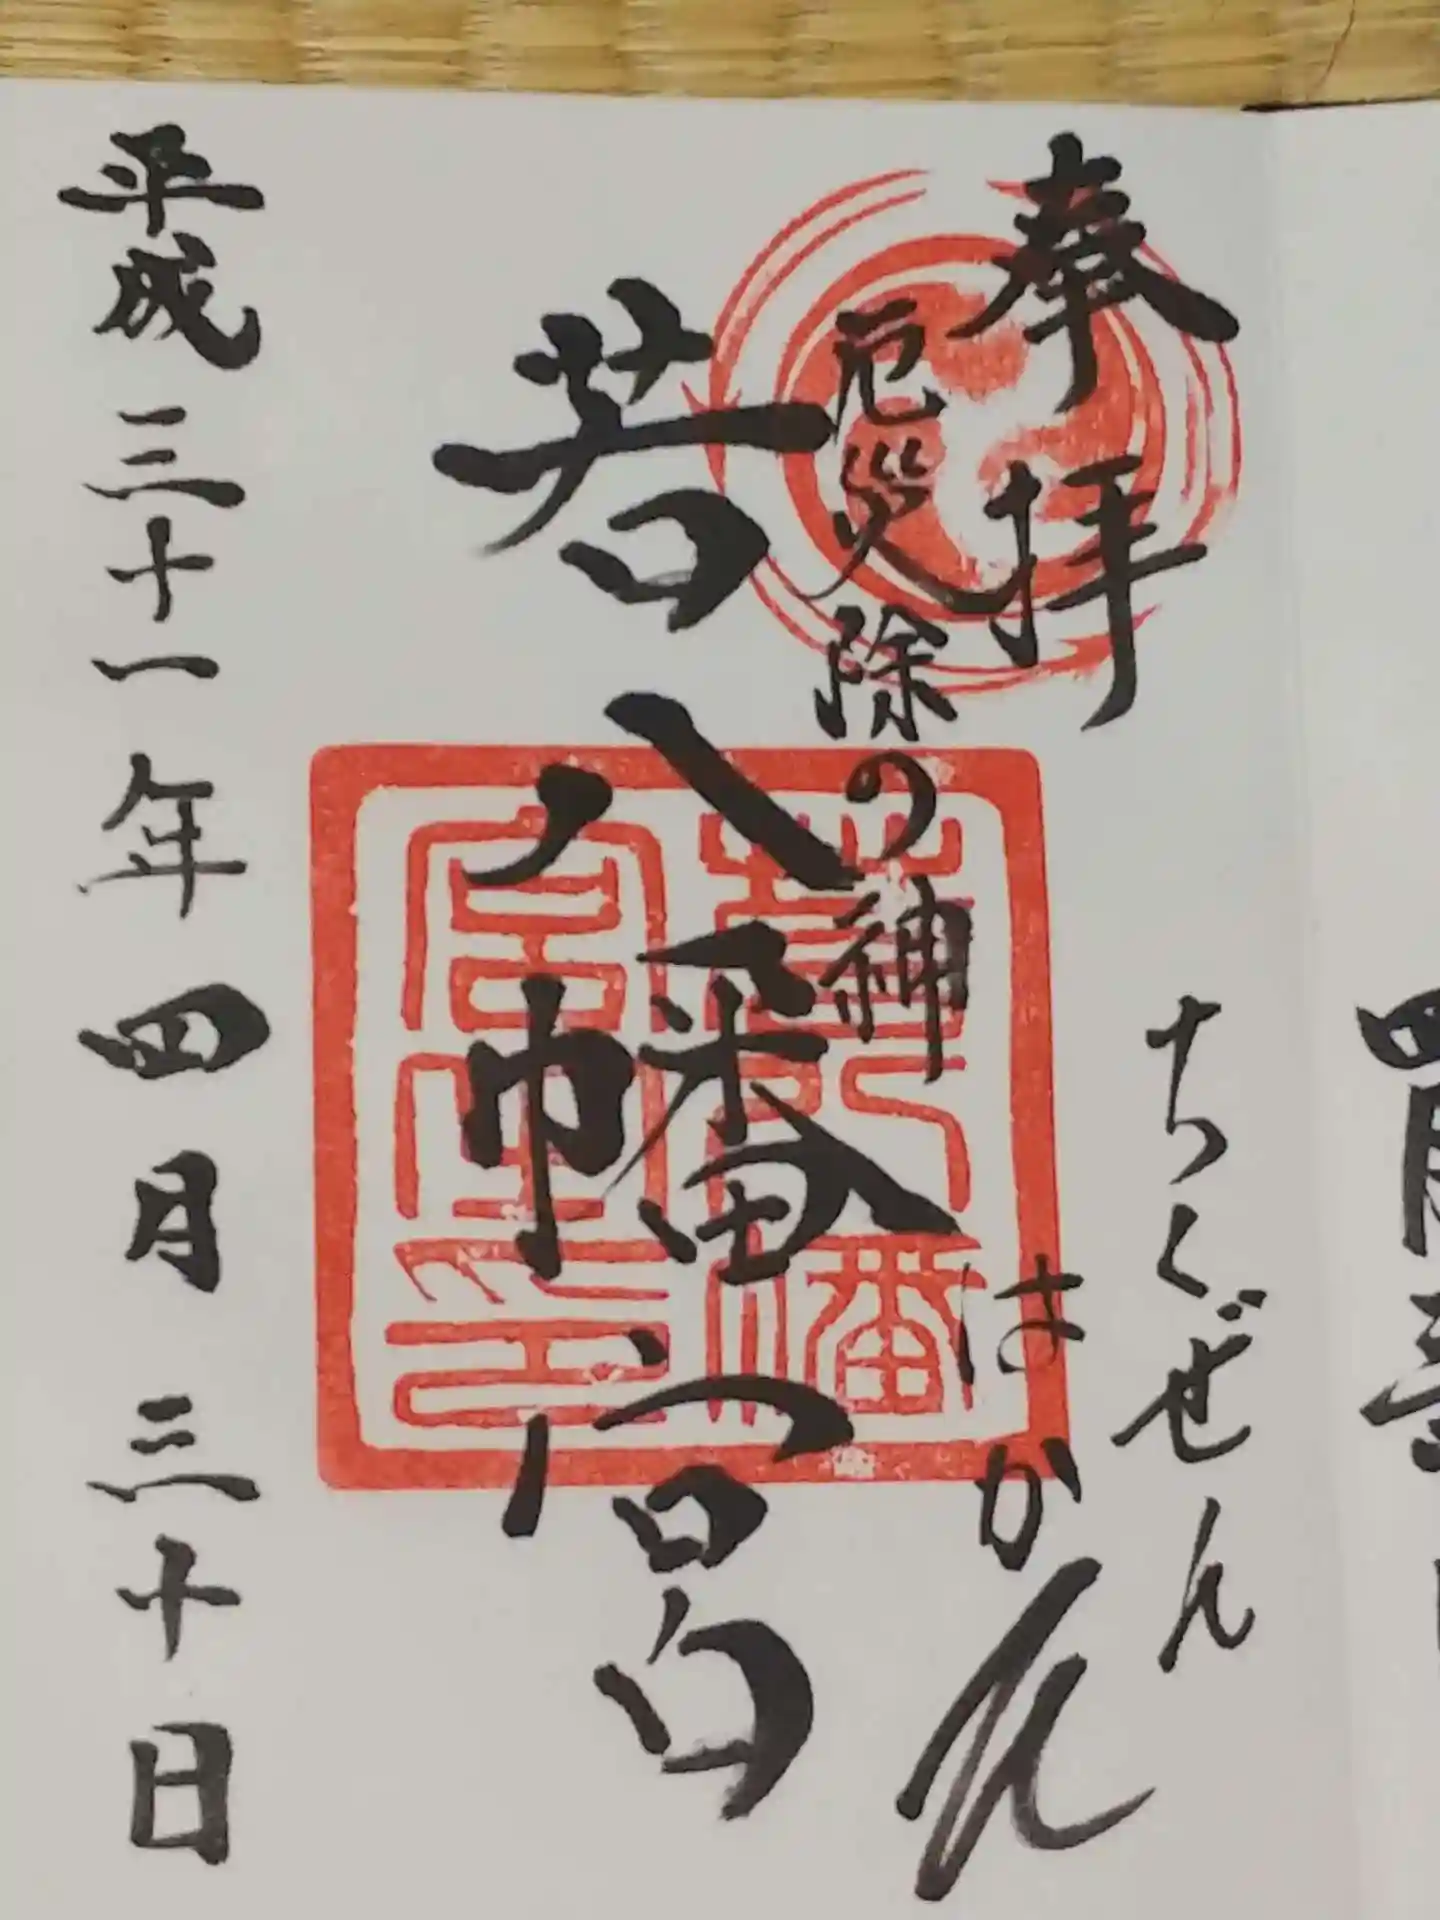 奉拝
ちくぜん
はかた
厄災除の神
若八幡宮
平成三十一年四月三十日
若八幡
宮之印